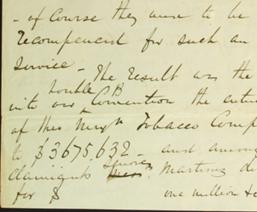 - of Course they were to be
recompensed for such an
service - The result was the
into our Convention the entire
of this Tobacco Comp
to $3675,632 - and among
Martinez
for $ one million &